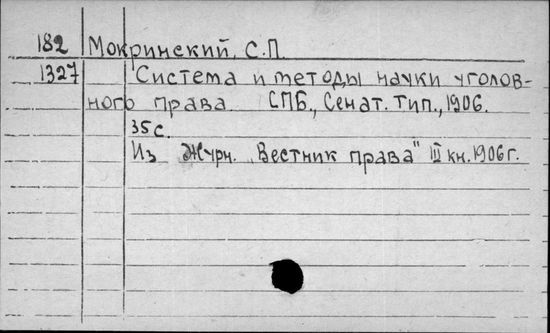 182 Мокринский, С.П.
1327 Система и методы науки уголов-
ного права СПБ., Сенат. Тип., 1906.
35 с.
Из Журн. „Вестник права" III кн. 1906 г.